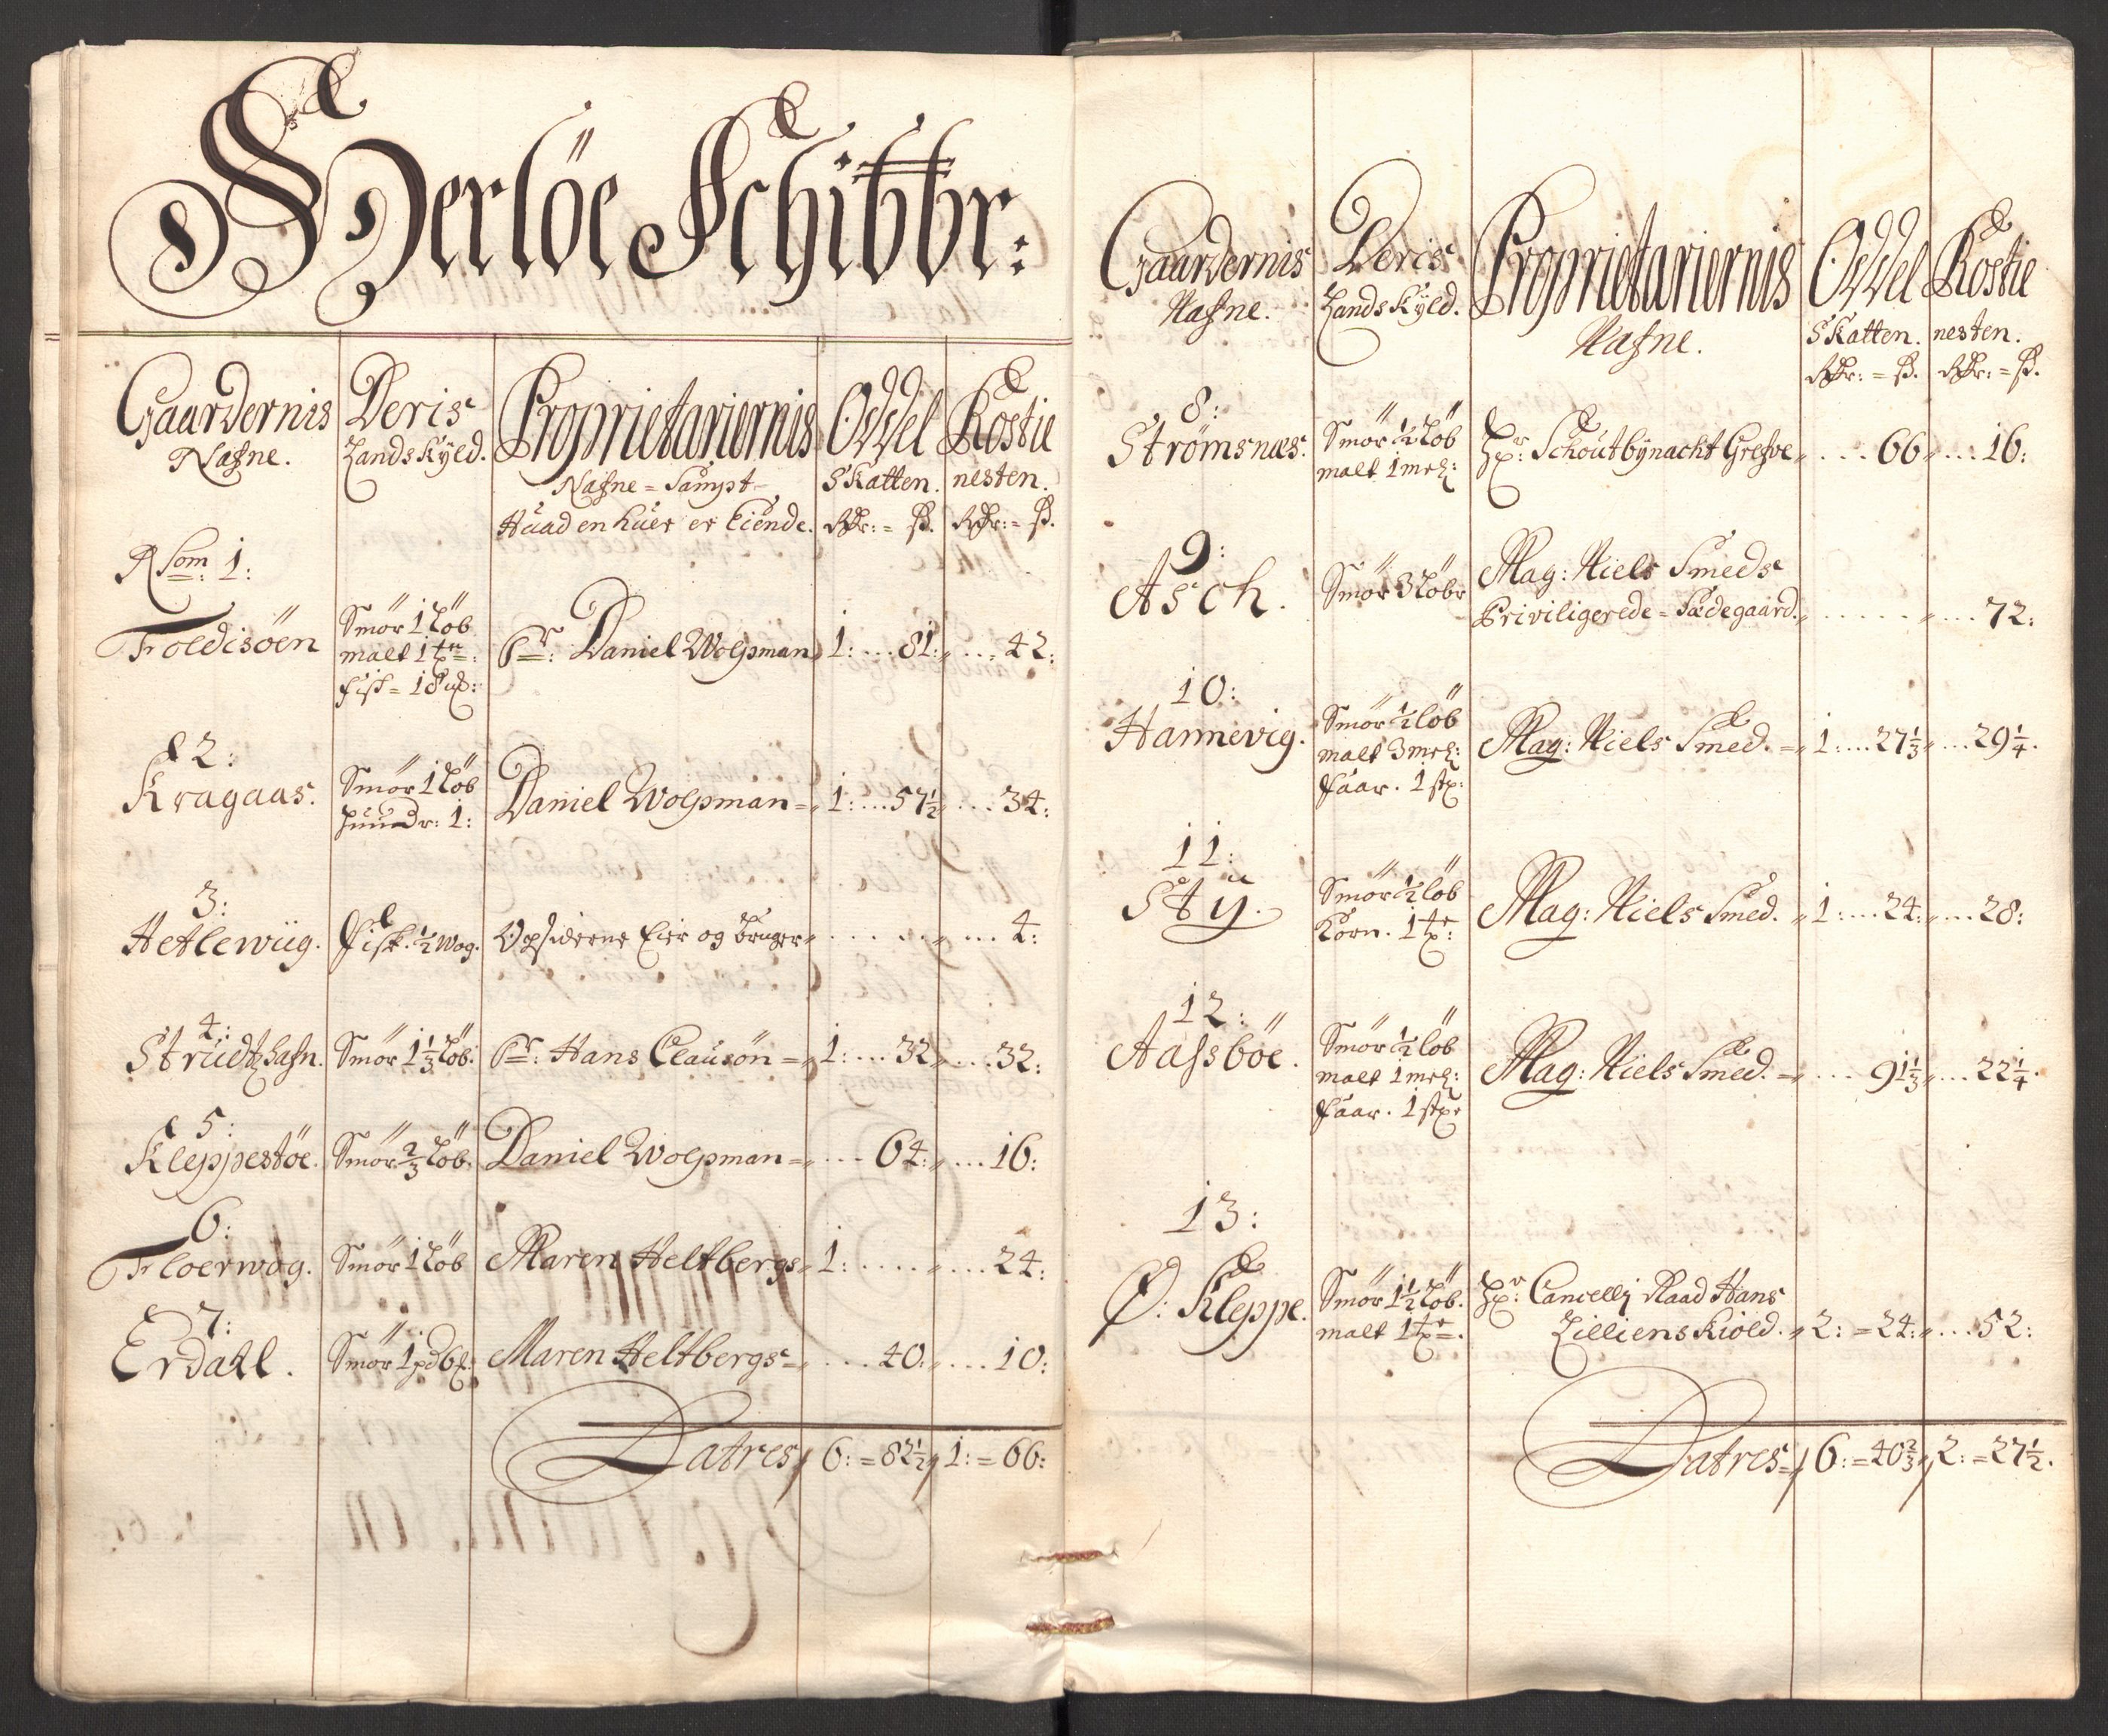 Herlöe Schibbr:
Gaardernis Nafne.
Deris Landskyld.
Proprietariernis Nafne = Sampt
Huad en huer er Eiende.
Ovvel Skatten. Rdr: = ß.
Kostie nesten. Rdr: = ß.
1:
Foldisöen
Smör 1 Löb
malt 1 tr:
fisk =
Sr: Daniel Wolpman 1: ... 81: ... 42:
2:
Kragaas.
Smör 1 Löb
Huudr: 1:
Daniel Wolpman = 1: ... 57½ ... 34:
3:
Hetlewiig.
fisk. ½ Wog.
Opsiderne Eier og bruger ... 4:
4:
Strudtzhafn.
Smör 1⅓ Löb:
Sr: Hans Clausön = 1: ... 32 ... 32:
5:
Kleppestöe.
Smör ⅔ Löb.
Daniel Wolpman = ... 64: ... 16:
6:
Floerwog.
Smör 1 Löb
Maren Heltbergs 1: ... 24:
7:
Erdall.
Smör 1 pd
Maren Heltbergs = ... 40: ... 10:
Latres 6: = 82½ 1: = 66:
Gaardernis Nafne.
Deris Landskyld.
Proprietariernis Nafne.
Ovvel Skatten. Rdr: = ß.
Kostie nesten. Rdr: = ß.
8:
Strömsnæs.
Smör ½ Löb
malt 1 mel:
Hr: Schoutbynacht Grefve ... 66 ... 16:
9:
Asch.
Smör 3 Löbr
Mag: Niels Smeds
Priviligerede = Sædegaard. ... 72:
10:
Hannevig.
Smör ½ löb
malt 3 mel:
faar. 1 st:
Mag: Niels Smed. = 1: ... 27⅓ ... 29¼.
11:
Sty.
Smör ½ löb
Korn. 1 tr:
Mag: Niels Smed. 1: ... 24: ... 28:
12:
Aassböe.
Smör ½ löb
malt 1 mel:
faar. 1 st:
Mag: Niels Smed. = ... 91⅓ ... 22¼.
13:
Ø: Kleppe.
Smör 1½ Löb.
malt 1 tr.
Hr: Cancellj Raad Hans
Lillienskiold. 2: = 24: ... 52:
Latres = 6: = 40⅔ 2: = 27½.